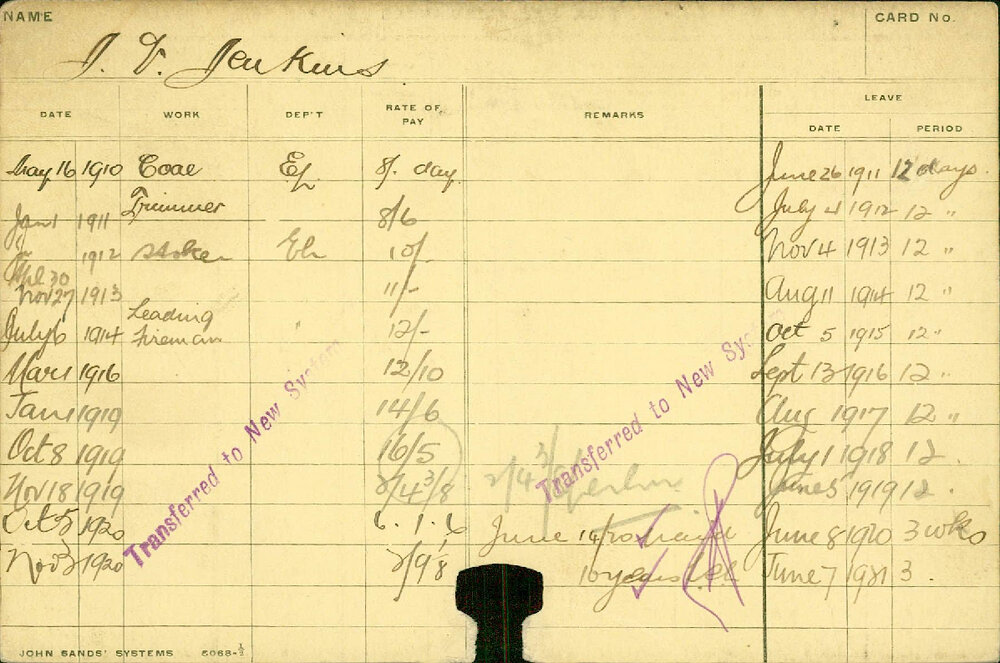 NAME
CARD No.
J. V. Jenkins
DATE WORK DEP'T RATE OF PAY REMARKS LEAVE
DATE PERIOD
May 16 1910 Coal 8/. day June 26 1911 12 days.
Jan 1 1911 Trimmer 8/6 July 4 1912 12 "
1912 Stoker 10/- Nov 4 1913 12 "
Apl 30
Nov 27 1913 11/- Aug 11 1914 12 "
July 6 1914 Leading Fireman " 12/- Oct 5 1915 12 "
Mar 1 1916 12/10 Sept 13 1916 12 "
Jan 1 1919 14/6 Aug 1917 12 "
Oct 8 1919 16/5 July 1 1918 12 .
Nov 18 1919 2/4 3/8 2/4 3/8 June 5 1919 12 .
Oct 5 1920 6.1.6 June 14 June 8 1920 3 wks
Nov 3 1920 2/9 1/8 10 years June 7 1921 3 .
Transferred to New System
Transferred to New Sy
JOHN SANDS' SYSTEMS 5068-½